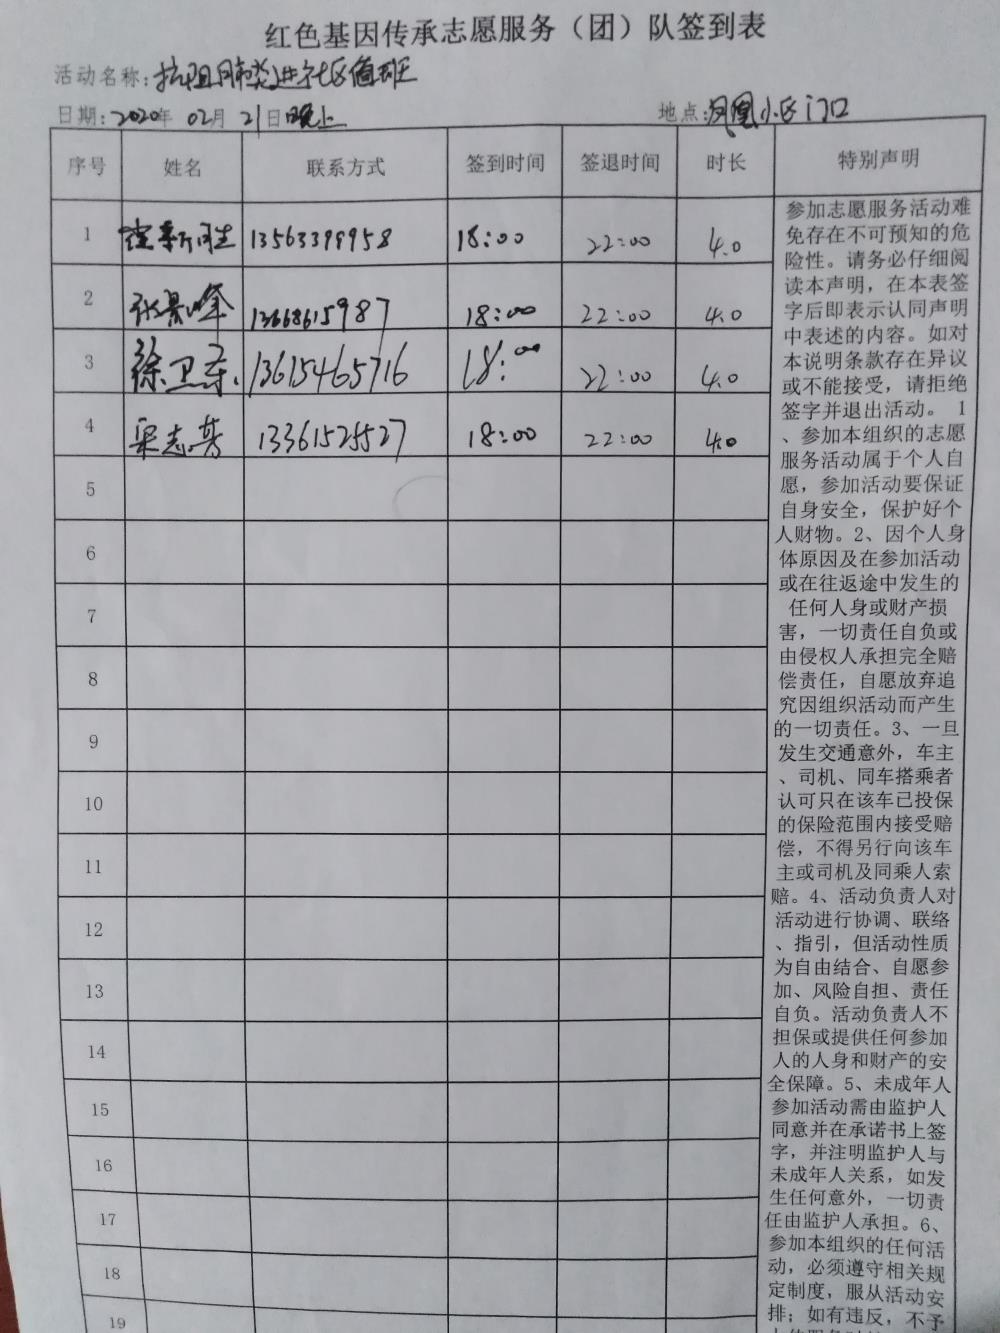 红色基因传承志愿服务（团）队签到表
活动名称：抗阻肺炎进社区值班
日期：2020年 02月 21日晚上 地点：凤凰小区门口
序号 姓名 联系方式 签到时间 签退时间 时长 特别声明
1 13563399958 18:00 22:00 4.0
2 张景峰 13668615987 18:00 22:00 4.0
3 徐卫东 13615465716 18:00 22:00 4.0
4 梁志芳 13361525527 18:00 22:00 4.0
5
6
7
8
9
10
11
12
13
14
15
16
17
18
19
参加志愿服务活动难
免存在不可预知的危
险性。请务必仔细阅
读本声明，在本表签
字后即表示认同声明
中表述的内容。如对
本说明条款存在异议
或不能接受，请拒绝
签字并退出活动。 1
、参加本组织的志愿
服务活动属于个人自
愿，参加活动要保证
自身安全，保护好个
人财物。2、因个人身
体原因及在参加活动
或在往返途中发生的
任何人身或财产损
害，一切责任自负或
由侵权人承担完全赔
偿责任，自愿放弃追
究因组织活动而产生
的一切责任。3、一旦
发生交通意外，车主
、司机、同车搭乘者
认可只在该车已投保
的保险范围内接受赔
偿，不得另行向该车
主或司机及同乘人索
赔。4、活动负责人对
活动进行协调、联络
、指引，但活动性质
为自由结合、自愿参
加、风险自担、责任
自负。活动负责人不
担保或提供任何参加
人的人身和财产的安
全保障。5、未成年人
参加活动需由监护人
同意并在承诺书上签
字，并注明监护人与
未成年人关系，如发
生任何意外，一切责
任由监护人承担。6、
参加本组织的任何活
动，必须遵守相关规
定制度，服从活动安
排；如有违反，不予